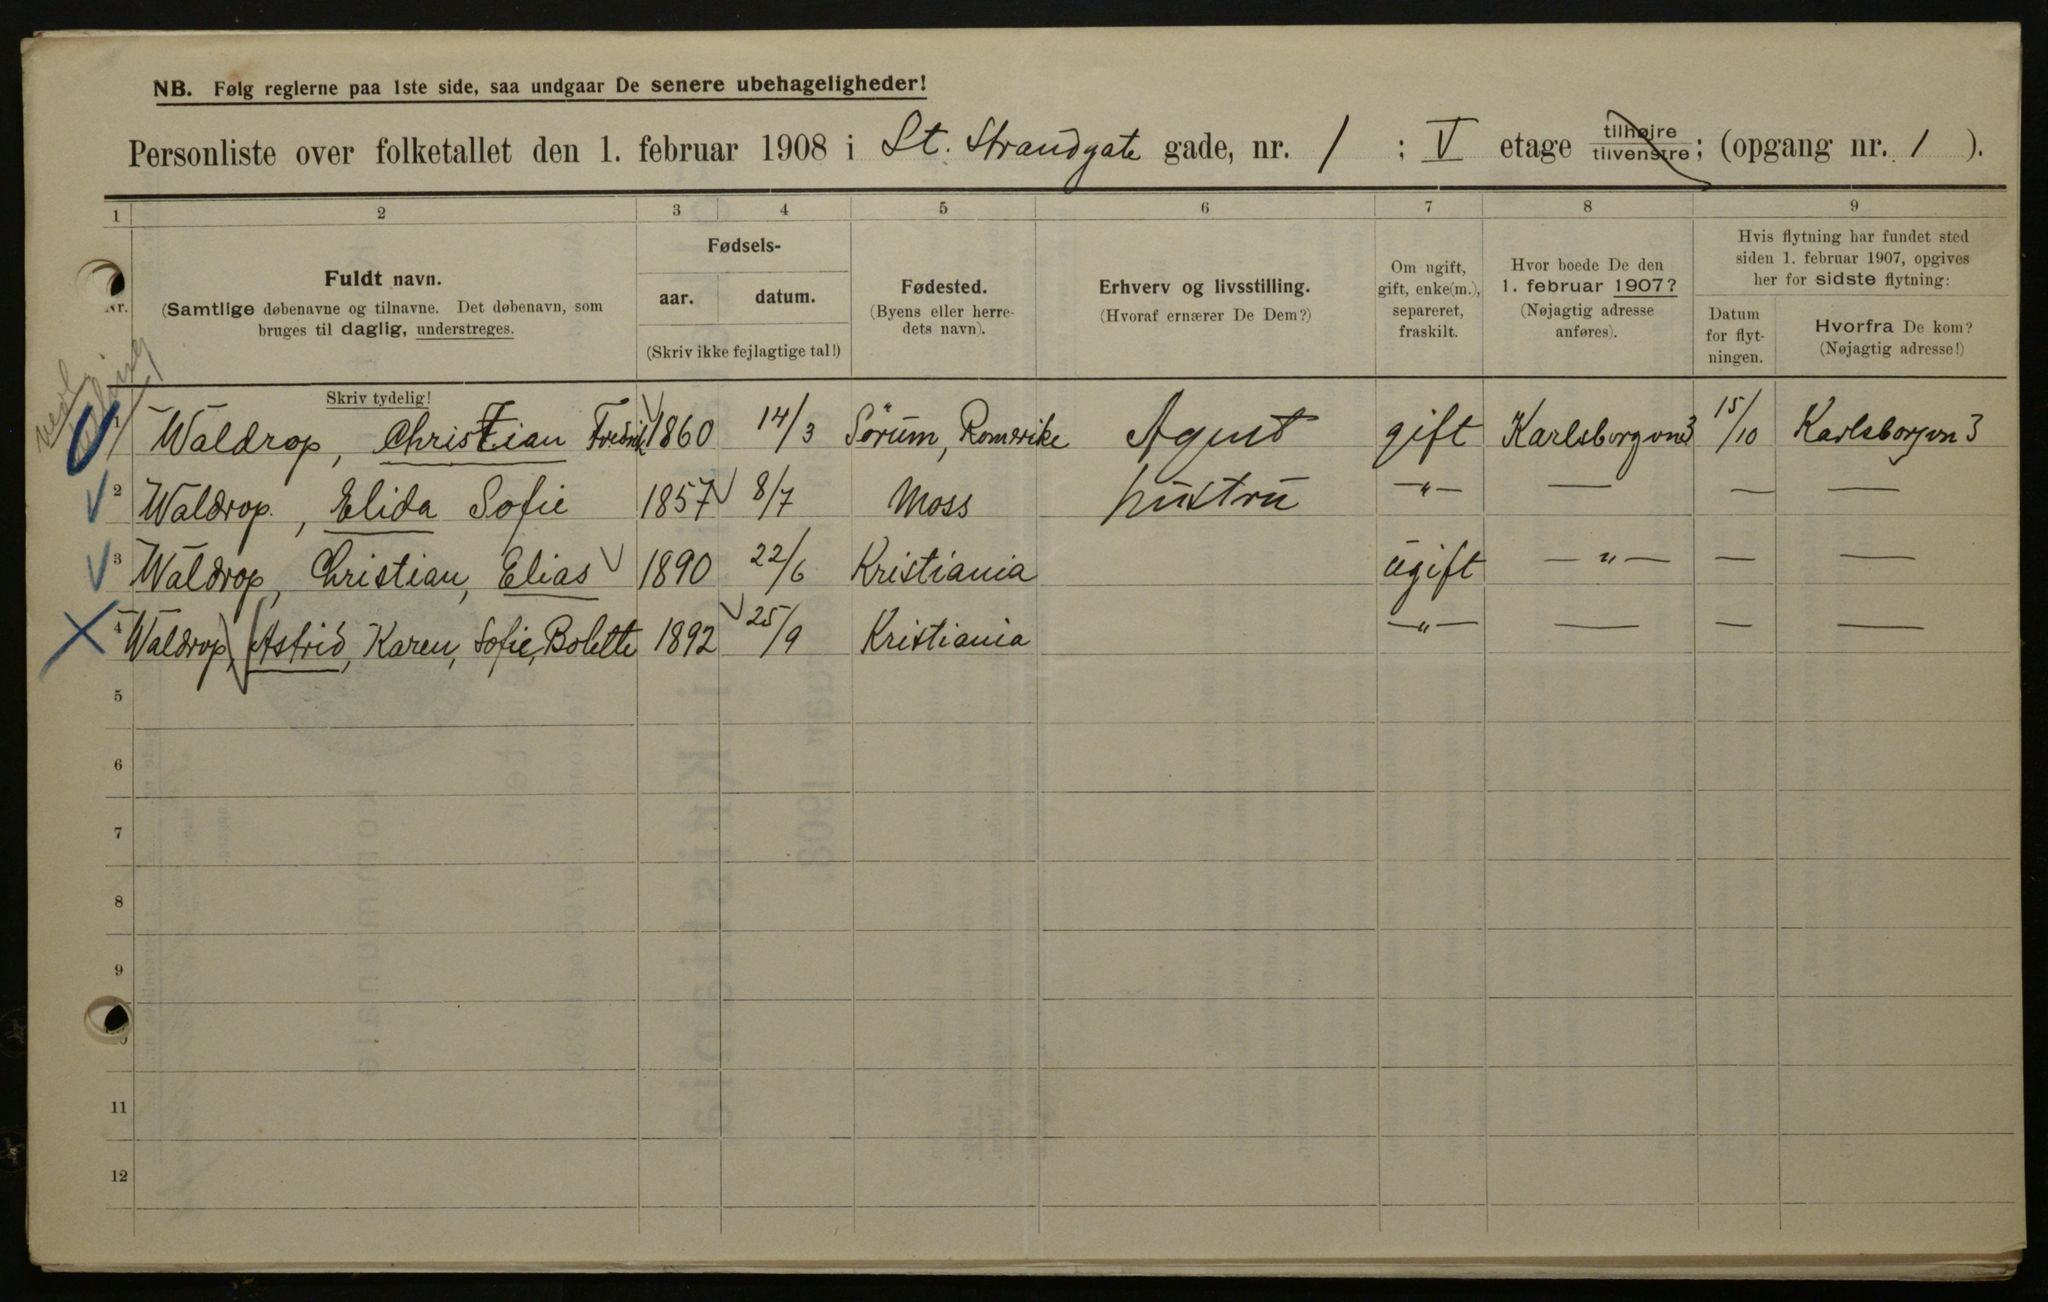 NB. Følg reglerne paa 1ste side, saa undgaar De senere ubehageligheder!
Personliste over folketallet den 1. februar 1908 i St. Strandgate gade, nr. 1 ; V etage tilhøjre tilvenstre; (opgang nr. 1 ).
1 2 3 4 5 6 7 8 9
Nr.
Fuldt navn.
(Samtlige døbenavne og tilnavne. Det døbenavn, som
bruges til daglig, understreges.
Skriv tydelig!
Fødsels-
aar. datum.
(Skriv ikke fejlagtige tal!)
Fødested.
(Byens eller herre-
dets navn).
Erhverv og livsstilling.
(Hvoraf ernærer De Dem?)
Om ugift,
gift, enke(m.),
separeret,
fraskilt.
Hvor boede De den
1. februar 1907?
(Nøjagtig adresse
anføres).
Hvis flytning har fundet sted
siden 1. februar 1907, opgives
her for sidste flytning:
Datum
for flyt-
ningen.
Hvorfra De kom?
(Nøjagtig adresse!)
1 Waldrop, Christian Fredrik 1860 14/3 Sørum, Romerike Agent gift Karlsborgvn 3 15/10 Karlsborgvn 3
2 Waldrop, Elida Sofie 1857 8/7 Moss hustru —"— — — —
3 Waldrop, Christian, Elias 1890 22/6 Kristiania ugift —"— — —
4 Waldrop, Astrid, Karen, Sofie, Bolette 1892 25/9 Kristiania —"— — — —
5
6
7
8
9
11
12